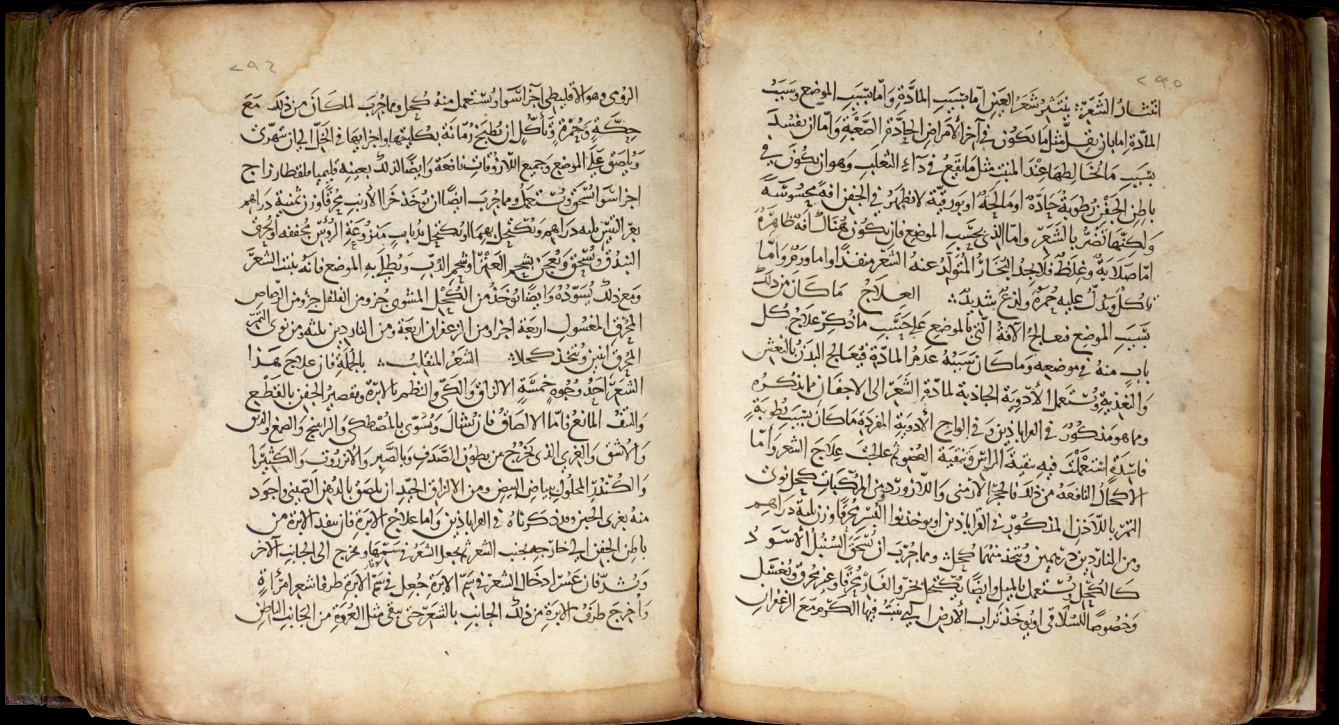 ٢٩٥
انتشار الشعر ينتثر شعر العين اما بسبب المادة واما بسبب الموضع وسبب
المادة اما بان يقل مثل ما يكون في آخر الأمراض الحادة الصعبة واما ان تفسد
بسبب ما يخالطها عند المنبت مثل ما يقع في داء الثعلب وهو ان يكون في
باطن الجفن رطوبة حادة او مالحة او بورقية لا تظهر في الجفن آفة محسوسة
ولكنها تضر بالشعر واما الذي بحسب الموضع فان يكون هناك آفة ظاهرة
اما صلابة وغلظ فلا يجد البخار المتولد عنه الشعر منفذا واما ورم واما
تأكل ويدل عليه حمرة ولذع شديد العلاج ما كان من ذلك
بسبب الموضع فعالج الآفة التي بالموضع على حسب ما ذكر علاج كل
باب منه في موضعه وما كان سببه عدم المادة فيعالج البدن بالنعش
والتغذية وتستعمل الأدوية الجاذبة لمادة الشعر الى الاجفان مما نذكره
ومما هو مذكور في القراباذين وفي الواح الأدوية المفردة وما كان بسبب رطوبة
فاسدة استعملت فيه تنقية الرأس وتنقية العضو ثم عالجت علاج الشعر واما
الاكحال النافعة من ذلك فالحجر الارمني واللازورد ومن المركبات كحل نوى
التمر باللاذن المذكور في القراباذين او يؤخذ نوى البسر محرقا وزن ثلثة دراهم
ومن الناردين درهمين ويتخذ منهما كحل ومما جرب ان يسحق السنبل الأسود
كالكحل ويستعمل بالميل وايضا يكتحل بخرء الفار محرقا وغير محرق بعسل
وخصوصا للسلاقي او يؤخذ تراب الأرض التي ينبت فيها الكرم مع الزعفران
٢٩٦
الرومي وهو الاقليطي اجزا سوا ويستعمل منه كحل ومما جرب لما كان من ذلك مع
حكة وحمرة وتأكل ان تطبخ رمانة بكليتها واجزائها في الخل الى ان تتهرى
ويلصق على الموضع وجميع اللازوقات نافعة وايضا لذلك بعينه قليميا قلقطار زاج
اجزا سوا تسحق وتستعمل ومما جرب ايضا ان يؤخذ خرا الأرنب محرقا وزن ثمنة دراهم
بعر التيس ثلثة دراهم ويكتحل بهما او يكتحل بذباب منزوعة الرؤس مجففة او يحرق
البندق ويسحق ويعجن بشحم العنز او شحم الدب ويطلى به الموضع فانه ينبت الشعر
ومع ذلك يسوده وايضا يؤخذ من الكحل المشوي جزء ومن الفلفل جزء ومن الرصاص
المحرق المغسول اربعة اجزا ومن الزعفران اربعة ومن الناردين ثلثة ومن نوى التمر
المحرق اثنين ويتخذ كحلا الشعر المنقلب بالجملة فان علاج هذا
الشعر احد وجوه خمسة الالزاق والكي والنظم بالابرة وتقصير الجفن بالقطع
والنتف المانع فاما الالصاق فان يشال ويسوى بالمصطكى والراتينج والصمغ والدبق
والاشق والغرى الذي يخرج من بطون الصدف وبالصبر والانزروت والكثيرا
والكندر المحلول ببياض البيض ومن الالزاق الجيد ان يلصق بالدهن الصيني واجود
منه بغرى الجبن وقد ذكرناه في القراباذين واما علاج الابرة فان تنفذ الابرة من
باطن الجفن الى خارجه بجنب الشعر ثم يجعل الشعر في سمها وتخرج الى الجانب الآخر
وتشد فان عسر ادخال الشعر في سم الابرة جعل في سم الابرة طرفا شعر امرأة
وأخرج طرف الابرة من ذلك الجانب بالشعر حتى يبقى مثل العروة من الجانب الباطن